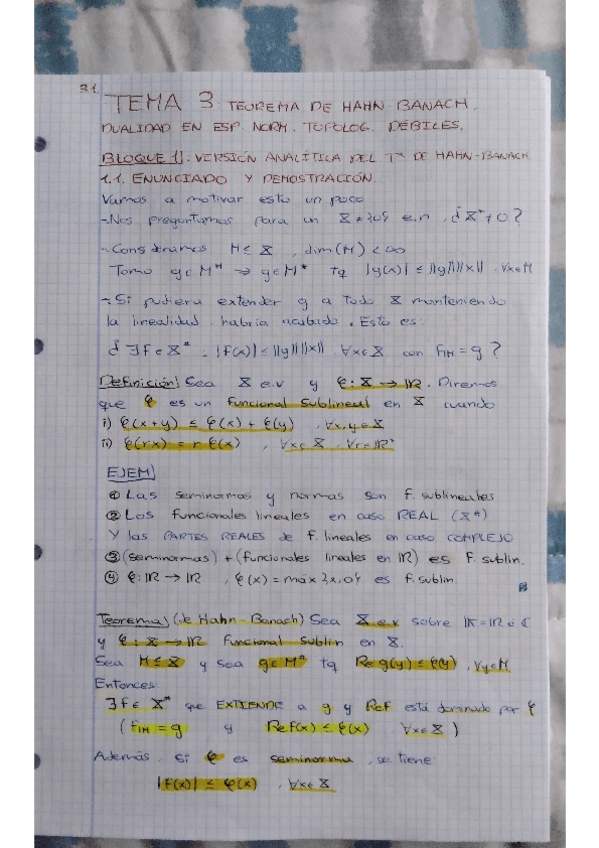 3.1
TEMA 3 TEOREMA DE HAHN-BANACH.
DUALIDAD EN ESP. NORM. TOPOLOG. DÉBILES.
BLOQUE 1). VERSIÓN ANALÍTICA DEL Tª DE HAHN-BANACH
1.1. ENUNCIADO Y DEMOSTRACIÓN.
Vamos a motivar esto un poco
-Nos preguntamos para un X ≠ {0} e.n, ¿X* ≠ 0?
-Consideramos M ≤ X, dim(M) < ∞
Tomo g∈M# ⇒ g∈M* tq |g(x)| ≤ ||g|| ||x|| ∀x∈M
-Si pudiera extender g a todo X manteniendo
la linealidad, habría acabado. Esto es:
¿∃f∈X*, |f(x)| ≤ ||g|| ||x|| ∀x∈X con f|M = g?
Definición) Sea X e.v y φ: X → IR. Diremos
que φ es un funcional sublineal en X cuando
i) φ(x+y) ≤ φ(x) + φ(y), ∀x,y∈X
ii) φ(rx) = r φ(x), ∀x∈X, ∀r∈IR⁺
EJEM)
① Las seminormas y normas son f. sublineales
② Los funcionales lineales en caso REAL (X#)
Y las PARTES REALES de f. lineales en caso COMPLEJO
③ (seminormas) + (funcionales lineales en IR) es f. sublin.
④ φ: IR → IR, φ(x) = máx{x,0} es f. sublin.
Teorema) (de Hahn-Banach) Sea X e.v sobre IK = IR ó ℂ
y φ: X → IR funcional sublin en X.
Sea M ≤ X y sea g∈M# tq Re g(y) ≤ φ(y), ∀y∈M
Entonces:
∃f∈X# que EXTIENDE a g y Ref está dominado por φ
(f|M = g y Re f(x) ≤ φ(x) ∀x∈X)
Además, si φ es seminorma, se tiene:
|f(x)| ≤ φ(x), ∀x∈X